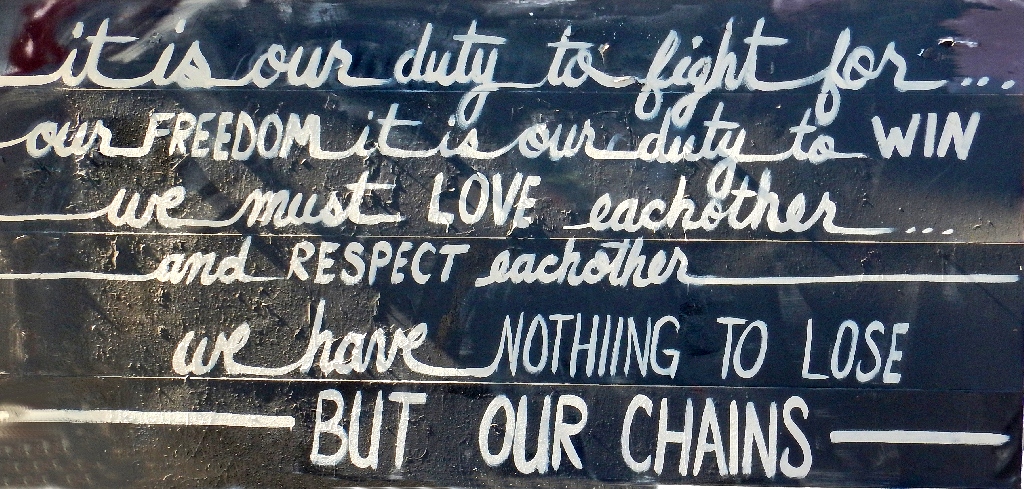 it is our duty to fight for...
our FREEDOM it is our duty to WIN
we must LOVE eachother...
and RESPECT eachother
we have NOTHIING TO LOSE
BUT OUR CHAINS